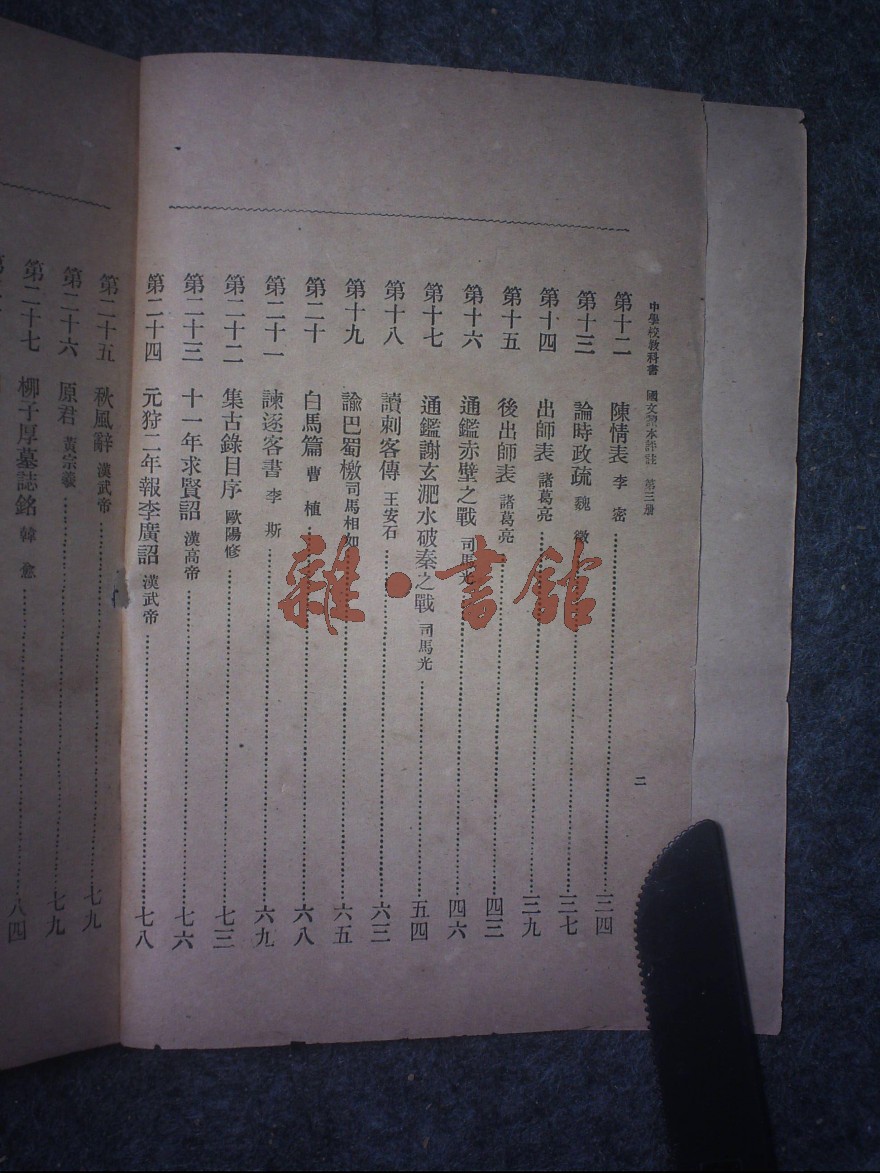 中學校教科書 國文讀本詳註 第三册
二
第十二 陳情表 李密 三四
第十三 論時政疏 魏徵 三七
第十四 出師表 諸葛亮 三九
第十五 後出師表 諸葛亮 四三
第十六 通鑑赤壁之戰 司馬光 四六
第十七 通鑑謝玄淝水破秦之戰 司馬光 五四
第十八 讀刺客傳 王安石 六三
第十九 諭巴蜀檄 司馬相如 六五
第二十 白馬篇 曹植 六八
第二十一 諫逐客書 李斯 六九
第二十二 集古錄目序 歐陽修 七三
第二十三 十一年求賢詔 漢高帝 七六
第二十四 元狩二年報李廣詔 漢武帝 七八
第二十五 秋風辭 漢武帝 七九
第二十六 原君 黃宗羲 七九
第二十七 柳子厚墓誌銘 韓愈 八四
雜·書館